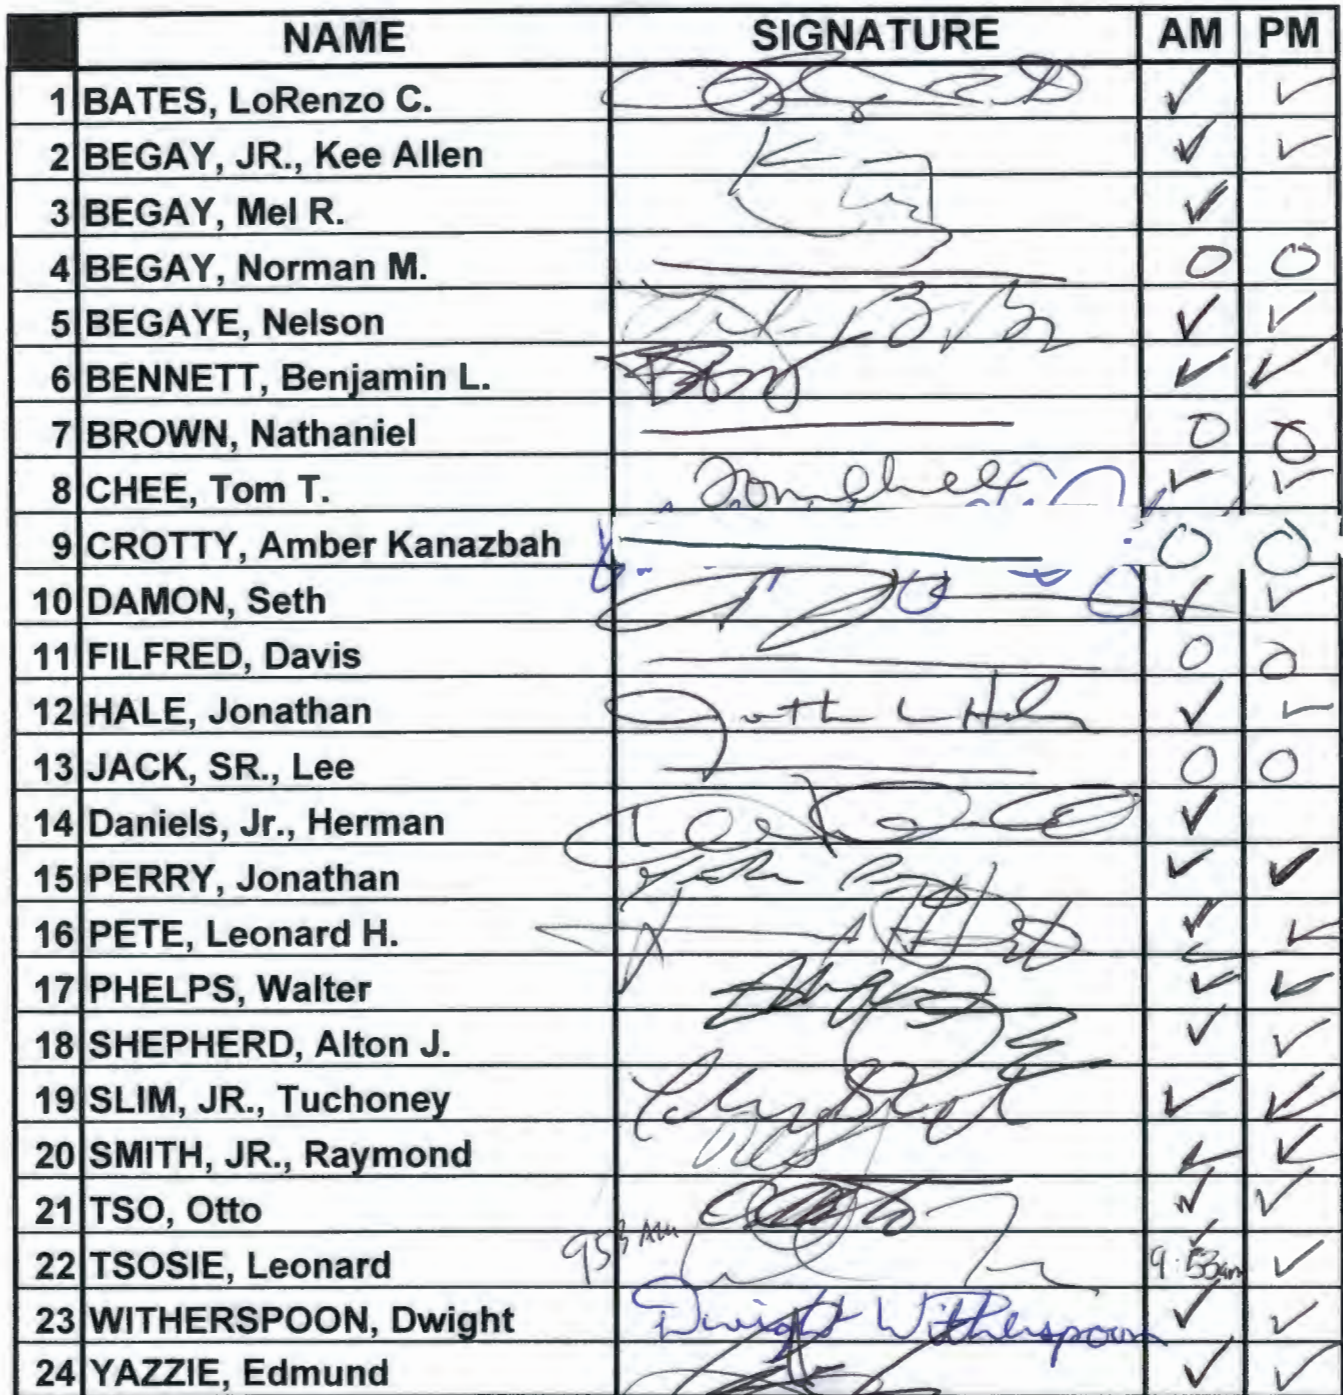 NAME SIGNATURE AM PM
1 BATES, LoRenzo C. ✓ ✓
2 BEGAY, JR., Kee Allen ✓ ✓
3 BEGAY, Mel R. ✓
4 BEGAY, Norman M. O O
5 BEGAYE, Nelson ✓ ✓
6 BENNETT, Benjamin L. ✓ ✓
7 BROWN, Nathaniel O O
8 CHEE, Tom T. Tom Chee ✓ ✓
9 CROTTY, Amber Kanazbah O O
10 DAMON, Seth ✓ ✓
11 FILFRED, Davis O O
12 HALE, Jonathan ✓ ✓
13 JACK, SR., Lee O O
14 Daniels, Jr., Herman ✓
15 PERRY, Jonathan ✓ ✓
16 PETE, Leonard H. ✓ ✓
17 PHELPS, Walter ✓ ✓
18 SHEPHERD, Alton J. ✓ ✓
19 SLIM, JR., Tuchoney ✓ ✓
20 SMITH, JR., Raymond ✓ ✓
21 TSO, Otto ✓ ✓
22 TSOSIE, Leonard 953 AM ✓ 9:53am ✓
23 WITHERSPOON, Dwight Dwight Witherspoon ✓ ✓
24 YAZZIE, Edmund ✓ ✓